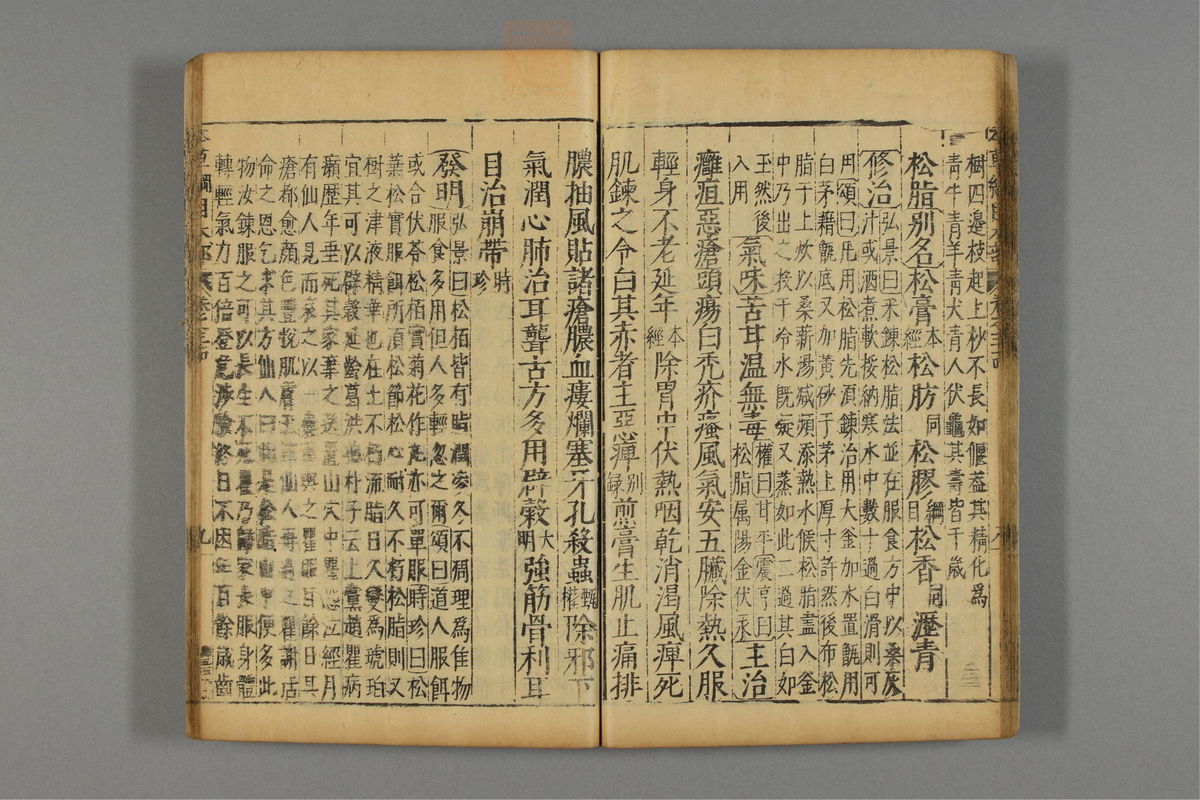 樹四邊枝起上杪不長如偃葢其精化為
青牛青羊青犬青人伏龜其壽皆千歲
松脂别名松膏本經松肪同松膠綱目松香同瀝青
修治弘景曰采鍊松脂法並在服食方中以桑灰
汁或酒煮軟挼納寒水中數十過白滑則可
用頌曰凡用松脂先須鍊治用大釜加水置甑用
白茅藉甑底又加黃砂于茅上厚寸許然後布松
脂于上炊以桑薪湯減頻添熱水候松脂盡入釜
中乃出之投于冷水既凝又蒸如此二過其白如
玉然後入用氣味苦甘温無毒權曰甘平震亨曰松脂属陽金伏汞主治
癰疽惡瘡頭瘍白禿疥瘙風氣安五臟除熱久服
輕身不老延年本經除胃中伏熱咽乾消渴風痺死
肌鍊之令白其赤者主惡痺别錄煎膏生肌止痛排
膿抽風貼諸瘡膿血瘻爛塞牙孔殺蟲甄權除邪下
氣潤心肺治耳聾古方多用辟穀大明強筋骨利耳
目治崩帶時珍
發明弘景曰松柏皆有脂潤凌冬不凋理為佳物
服食多用但人多輕忽之爾頌曰道人服餌
或合伏苓松柏實菊花作丸亦可單服時珍曰松
葉松實服餌所須松節松心耐久不朽松脂則又
樹之津液精華也在土不朽流脂日久變為琥珀
宜其可以辟穀延齡葛洪抱朴子云上黨趙瞿病
癩歷年垂死其家棄之送置山穴中瞿怨泣經月
有仙人見而哀之以囊藥與之瞿服百餘日其
瘡都愈顔色豐悅肌膚玉澤仙人再過之瞿謝活
命之恩乞求其方仙人曰此是松脂山中便多此
物汝鍊服之可以長生不死瞿乃歸家長服身體
轉輕氣力百倍登危涉險終日不困年百餘歲齒
本草綱目木部 卷三十四 九